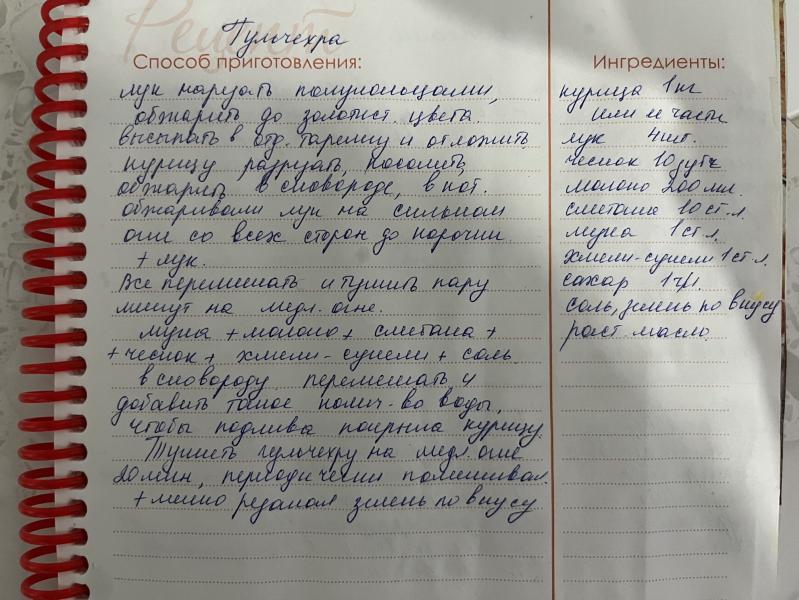 Рецепт
Гульчехра
Способ приготовления:
лук нарезать полукольцами,
обжарить до золотист. цвета.
высыпать в отд. тарелку и отложить
курицу разрезать, посолить,
обжарить в сковороде, в кот.
обжаривали лук на сильном
огне со всех сторон до корочки
+ лук.
Все перемешать и тушить пару
минут на медл. огне.
мука + молоко + сметана +
+ чеснок + хмели-сунели + соль
в сковороду, перемешать и
добавить такое колич-во воды,
чтобы подлива покрыла курицу.
Тушить гульчехру на медл. огне
20 мин, периодически помешивая
+ мелко резаная зелень по вкусу
Ингредиенты:
курица 1 кг
или её части
лук 4 шт.
чеснок 10 зубч
молоко 200 мл.
сметана 10 ст. л.
мука 1 ст л.
хмели-сунели 1 ст л.
сахар 1 ч/л.
соль, зелень по вкусу
раст. масло.